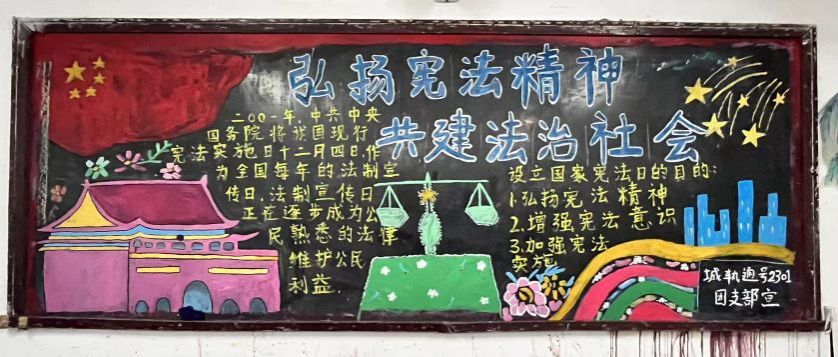 弘扬宪法精神
共建法治社会
二00一年,中共中央
国务院将我国现行
宪法实施日十二月四日,作
为全国每年的法制宣
传日,法制宣传日
正在逐步成为公
民熟悉的法律
维护公民
利益.
设立国家宪法日的目的:
1.弘扬宪法精神
2.增强宪法意识
3.加强宪法
实施
城轨通号2301
团支部宣